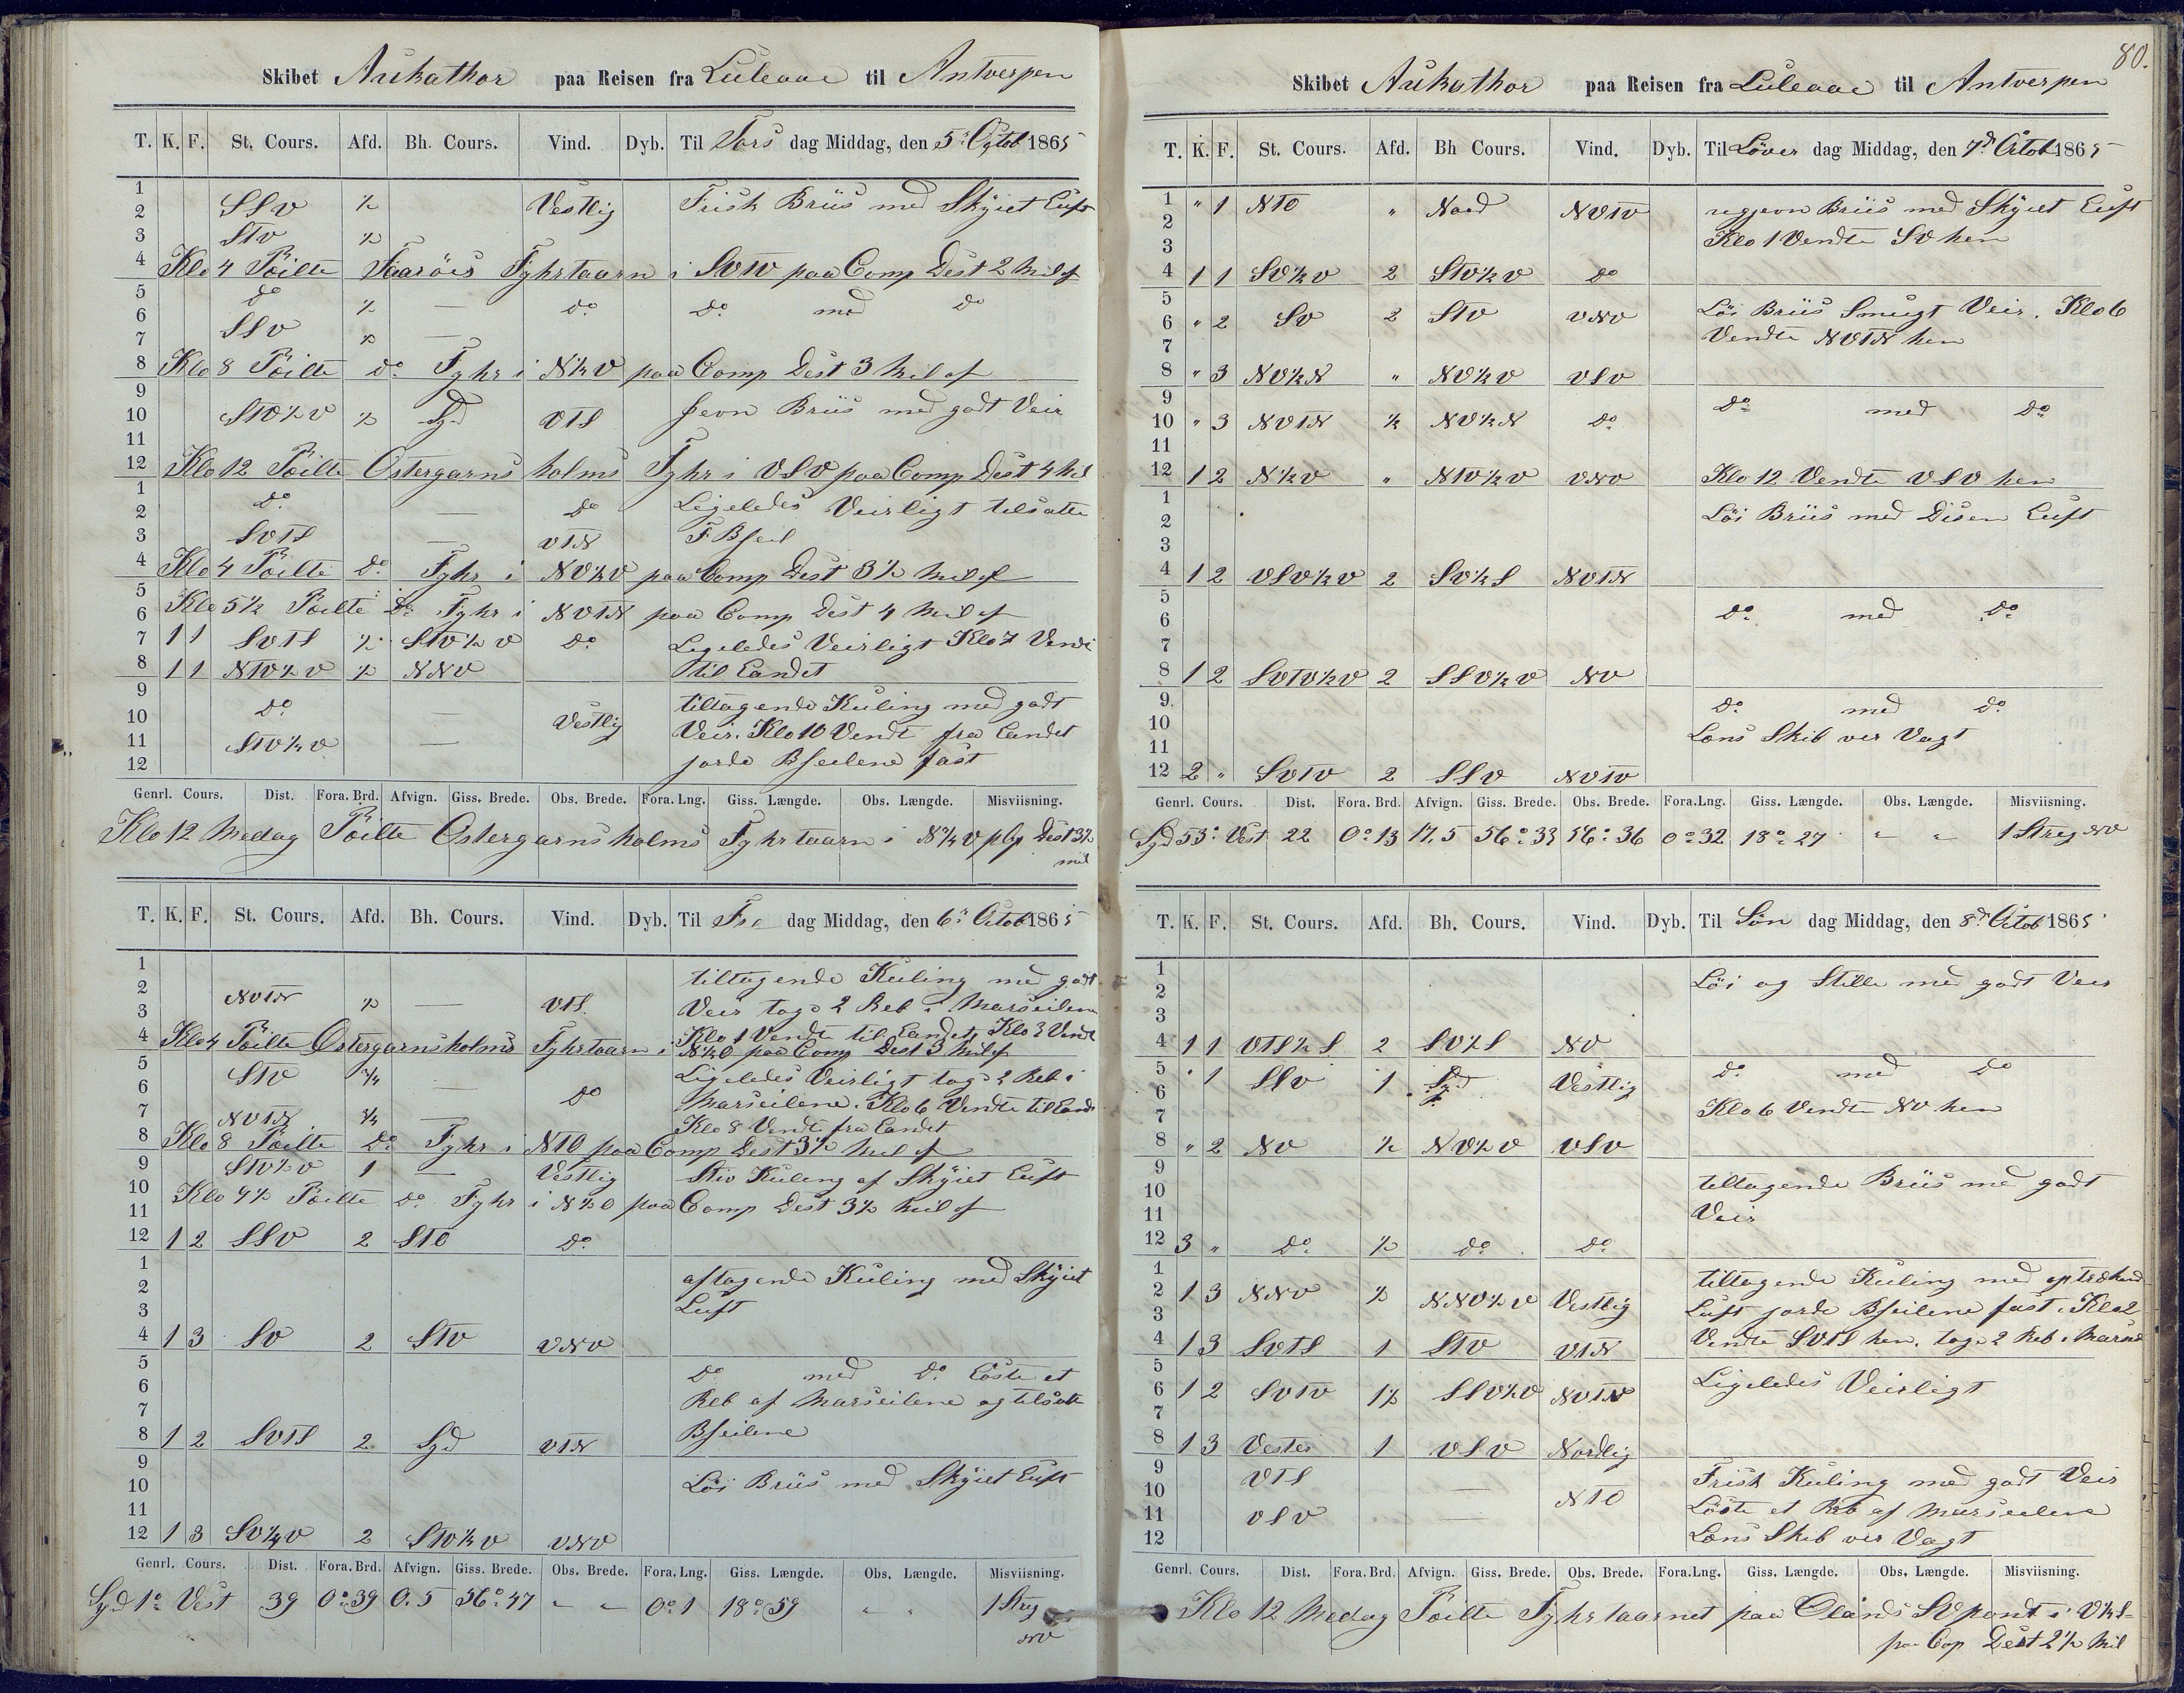 Skibet Aukathor paa Reisen fra Luleaae til Antverpen
T. K. F. St. Cours. Afd. Bh. Cours. Vind. Dyb. Til Tors dag Middag, den 5 Octob 1865
1
2 SSV ½ Vestlig Frisk Briis med Skyiet Luft
3 STV ½
4 Klo 4 Peilte Faaröes Fyhrtaarn i SVTV paa Comp Dest 2 Mil af
5 do ½ — do do med do
6
7 SSV ½ —
8 Klo 8 Peilte do Fyhr i N½V paa Comp Dest 3 Mil af
9
10 STV½V ½ Syd VTS jevn Briis med godt Veir
11
12 Klo 12 Peilte Östergarns holms Fyhr i VSV paa Comp Dest 4 Mil
1 do — do Ligeledes Veirligt tilsatte
2
3 SVTS — VTN F Bseil
4 Klo 4 Peilte do Fyhr i NV½V paa Comp Dest 3½ Mil af
5
6 Klo 5½ Peilte do Fyhr i NVTN paa Comp Dest 4 Mil af
7 1 1 SVTS ½ STV½V do Ligeledes Veirligt Klo 7 Vendt
8 1 1 NTV½V ½ NNV til Landet
9 tiltagende Kuling med godt
10 do — Vestlig Veir. Klo 10 Vendt fra Landet
11 STV½V —
12 jorde Bseilene fast
Genrl. Cours. Dist. Fora. Brd. Afvign. Giss. Brede. Obs. Brede. Fora. Lng. Giss. Længde. Obs. Længde. Misviisning.
Klo 12 Medag Peilte Östergarns holms Fyhrtaarn i N¼V p Cp Dest 3½
mil
T. K. F. St. Cours. Afd. Bh. Cours. Vind. Dyb. Til Fre dag Middag, den 6 Octob 1865
1 tiltagende Kuling med godt
2
3 NVTN ½ — VTS Veir tog 2 Reb i Marseilene
Klo 1 Vendte til Landet Klo 3 Vendt
4 Klo 4 Peilte Östergarnsholms Fyhrtaarn i N½O paa Comp Dest 3 Mil af
5 STV ¾ — Ligeledes Veirligt tog 2 Reb i
6 do Marseilene. Klo 6 Vendte til Land
7 NVTN ¾ — Klo 8 Vendt fra Landet
8 Klo 8 Peilte do Fyhr i NTO paa Comp Dest 3½ Mil af
9 STV½V 1 — Vestlig Stiv Kuling af Skyiet Luft
10 Klo 9½ Peilte do Fyhr i N½O paa Comp Dest 3½ Mil af
11
12 1 2 SSV 2 STO do
1 aftagende Kuling med Skyiet
2 Luft
3
4 1 3 SV 2 STV VNV
5 do med do Löste et
6 Reb af Marseilene og tilsatte
7
8 1 2 SVTS 2 Syd VTN Bseilene
9
10 Löi Briis med Skyiet Luft
11
12 1 3 SV¼V 2 STV½V VNV
Genrl. Cours. Dist. Fora. Brd. Afvign. Giss. Brede. Obs. Brede. Fora. Lng. Giss. Længde. Obs. Længde. Misviisning.
Syd 1° Vest 39 0°39 0.5 56°47 " " 0°1 18°59 " " 1 Streg
NV
80.
Skibet Aukathor paa Reisen fra Luleaae til Antverpen
T. K. F. St. Cours. Afd. Bh Cours. Vind. Dyb. Til Löver dag Middag, den 7d Octob 1865
1 " 1 NTO " Nord NVTV med Skyiet Luft
2 Klo 1 Vendte SV hen
3
4 1 1 SV½V 2 STV½V do
5
6 " 2 SV 2 STV VNV Löi Briis Smugt Veir. Klo 6
7 Vendte NVTN hen
8 " 3 NV½N " NV½V VSV
9
10 " 3 NVTN ½ NV½N do do med do
11
12 1 2 N½V " NTV½V VNV Klo 12 Vendte VSV hen
1
2 Löi Briis med Disen Luft
3
4 1 2 VSV½V 2 SV½S NVTN
5
6 do med do
7
8 1 2 SVTV½V 2 SSV½V NV
9
10 do med do
11 Læns Skib ver Vagt
12 2 " SVTV 2 SSV NVTV
Genrl. Cours. Dist. Fora. Brd. Afvign. Giss. Brede. Obs. Brede. Fora.Lng. Giss. Længde. Obs. Længde. Misviisning.
Syd 53° Vest 22 0°13 17,5 56°33 56°36 0°32 18°27 " " 1 Streg NV
T. K. F. St. Cours. Afd. Bh. Cours. Vind. Dyb. Til Søn dag Middag, den 8d Octob 1865
1 Löi og Stille med godt Veir
2
3
4 1 1 VTS½S 2 SV½S NV
5
6 " 1 SSV 1 Syd Vestlig do med do
7 Klo 6 Vendte NV hen
8 " 2 NV ½ NV½V VSV
9
10 tiltagende Briis med godt
11 Veir
12 3 " do ½ do do
1 tiltagende Kuling med
2 1 3 NNV ½ NNV½V Vestlig
3 Luft jorde Bseilene fast. Klo 2
4 1 3 SVTS 1 STV VTN Vendte SVTS hen. tog 2 Reb i
5
6 1 2 SVTV 1½ SSV½V NVTN Ligeledes Veirligt
7
8 1 3 Vester 1 VSV Nordlig
9 VTS Frisk Kuling med godt Veir
10 — NTO
11 VSV — Löste et Reb af Marseilene
12 Læns Skib ver Vagt
Genrl. Cours. Dist. Fora. Brd. Afvign. Giss. Brede. Obs. Brede. Fora.Lng. Giss. Længde. Obs. Længde. Misviisning.
Klo 12 Medag Peilte Fyhrtaarnet paa Ölands SV pont i V½S
paa Cop Dest 2½ Mil